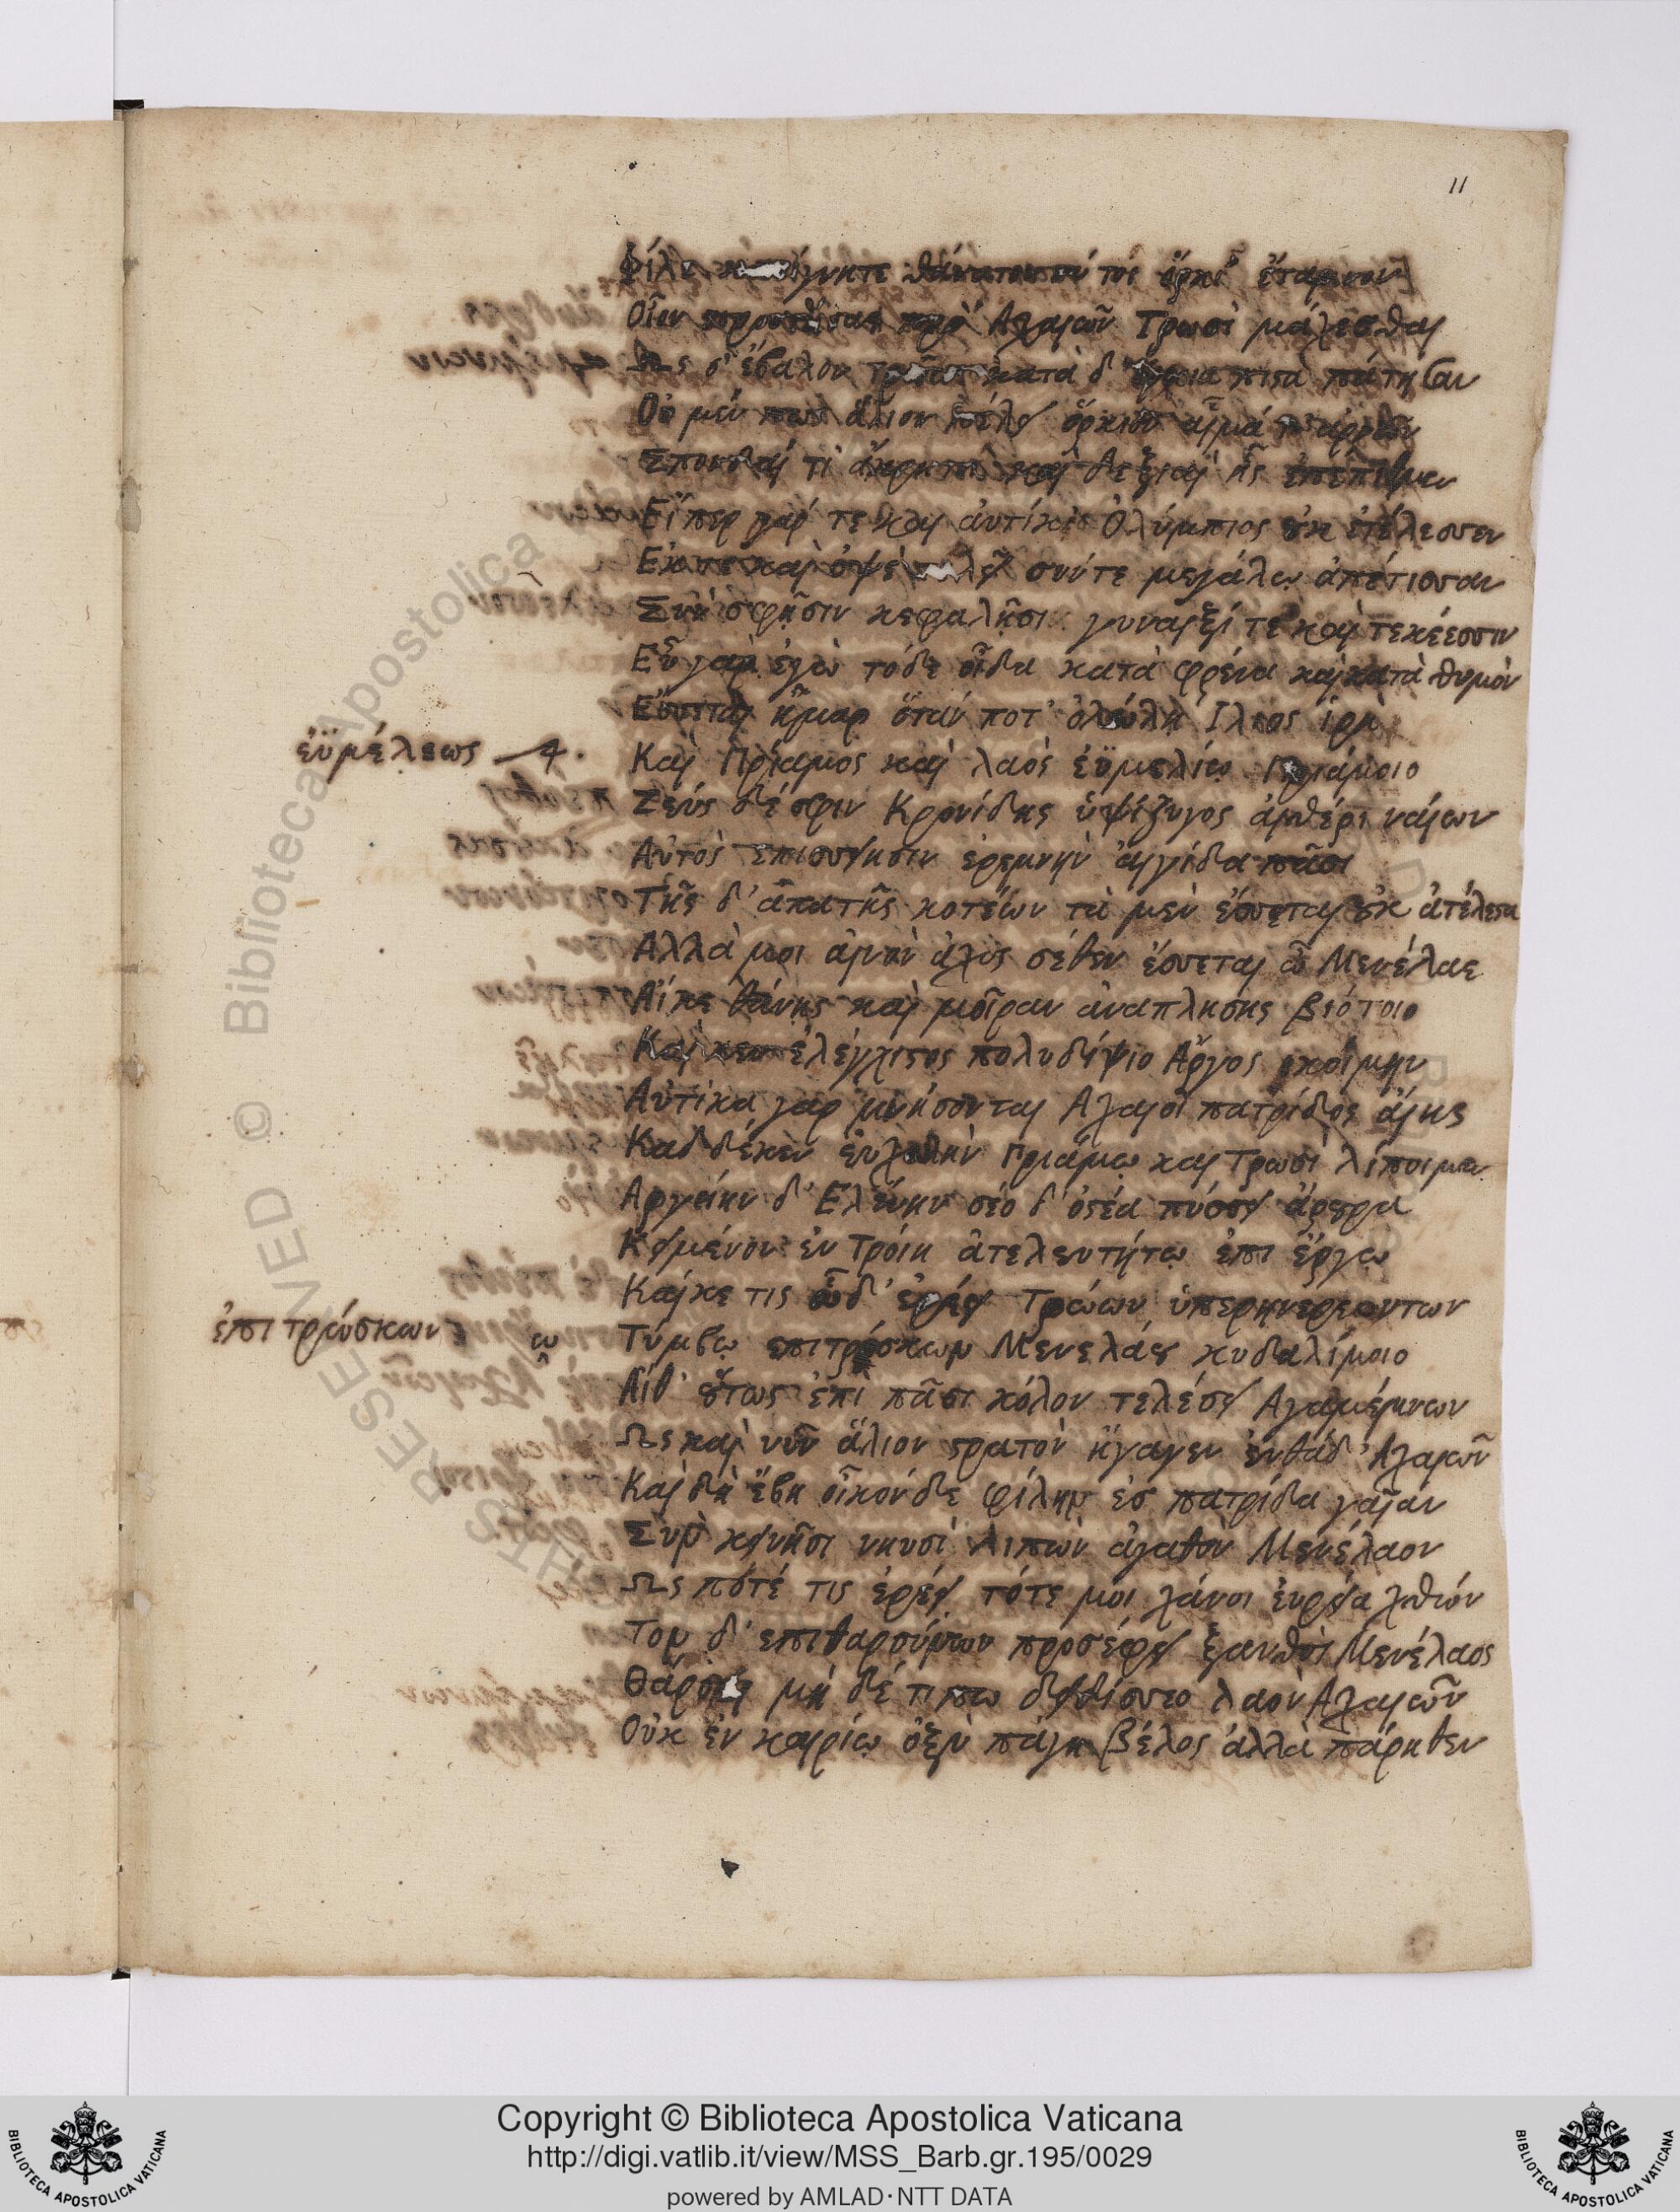 11
Φίλε κασίγνητε θάνατον νύ τοι ὅρκι' ἔταμνον
Οἷον προστήσας πρὸ Ἀχαιῶν Τρωσὶ μάχεσθαι
Ως σ' ἔβαλον Τρῶες κατὰ δ' ὅρκια πιστὰ πάτησαν
Οὐ μέν πως ἅλιον πέλει ὅρκιον αἷμά τ' ἀρνῶν
Σπονδαί τ' ἄκρητοι καὶ δεξιαὶ ᾗς ἐπέπιθμεν
Εἴπερ γάρ τε καὶ ἀυτίκ' Ολύμπιος οὐκ ἐτέλεσσεν
Εκ τε καὶ ὀψὲ τελεῖ σύν τε μεγάλῳ ἀπέτισσαν
Σὺν σφῇσιν κεφαλῇσι γυναιξί τε καὶ τεκέεσσιν
Εὖ γαρ ἐγὼ τόδε οἶδα κατὰ φρένα καὶ κατὰ θυμὸν
Εσσεται ἦμαρ ὅταν ποτ' ὀλώλη Ιλιος ἱρὴ
ἐϋμέλεως
Καὶ Πρίαμος καὶ λαὸς ἐϋμελίω Πριάμοιο
Ζεύς δέ σφιν Κρονίδης ὑψίζυγος αἰθέρι ναίων
Αὐτὸς ἐπισσείησιν ἐρεμνὴν ἀιγίδα πᾶσι
Τῆς δ' ἀπατῆς κοτέων τὰ μὲν ἔσσεται οὐκ ἀτέλεστα
Αλλά μοι αἰνὸν ἄχος σέθεν ἔσσεται ὦ Μενέλαε
Αἴ κε θάνης καὶ μοῖραν ἀναπλησης βιότοιο
Καί κεν ἐλέγχιστος πολυδίψιο Ἄργος ἱκοίμην
Αὐτίκα γαρ μνήσονται Αχαιοὶ πατρίδος ἄιης
Καδδέκεν ἐυχωλὴν Πριάμῳ καὶ Τρωσὶ λίποιμεν
Αργείην δ' Ελένην σέο δ' ὀστέα πύσει ἄρουρα
Κειμένου ἐν Τροίη ἀτελευτήτῳ ἐπι ἔργῳ
Καί κε τις ὧδ' ἐρέει Τρώων ὑπερηνορεόντων
ἐπι τρώσκων ω
Τύμβῳ επιτρόσκων Μενελάου κυδαλίμοιο
Αἴθ' οὕτως ἐπὶ πᾶσι χόλον τελέσει Αγαμέμνων
Ως καὶ νῦν ἅλιον στρατὸν ἤγαγεν ἐνθάδ' Αχαιῶν
Καὶ δὴ ἔβη οἶκόνδε φίλην ἐσ πατρίδα γαῖαν
Σὺν κεινῆσι νηυσὶ λιπὼν ἀγαθὸν Μενέλαον
Ως πότέ τις ἐρέει τότε μοι χάνοι ἐυρεῖα χθών
Τον δ' επιθαρσύνων προσέφη ξανθὸς Μενέλαος
Θάρσει μὴ δέ τι πω δειδίσσεο λαον Αχαιῶν
Οὐκ ἐν καιρίῳ ὀξὺ πάγη βέλος ἀλλὰ πάροιθεν
RESERVED © Biblioteca Apostolica
Copyright © Biblioteca Apostolica Vaticana
http://digi.vatlib.it/view/MSS_Barb.gr.195/0029
powered by AMLAD·NTT DATA
BIBLIOTECA APOSTOLICA VATICANA
BIBLIOTECA APOSTOLICA VATICANA